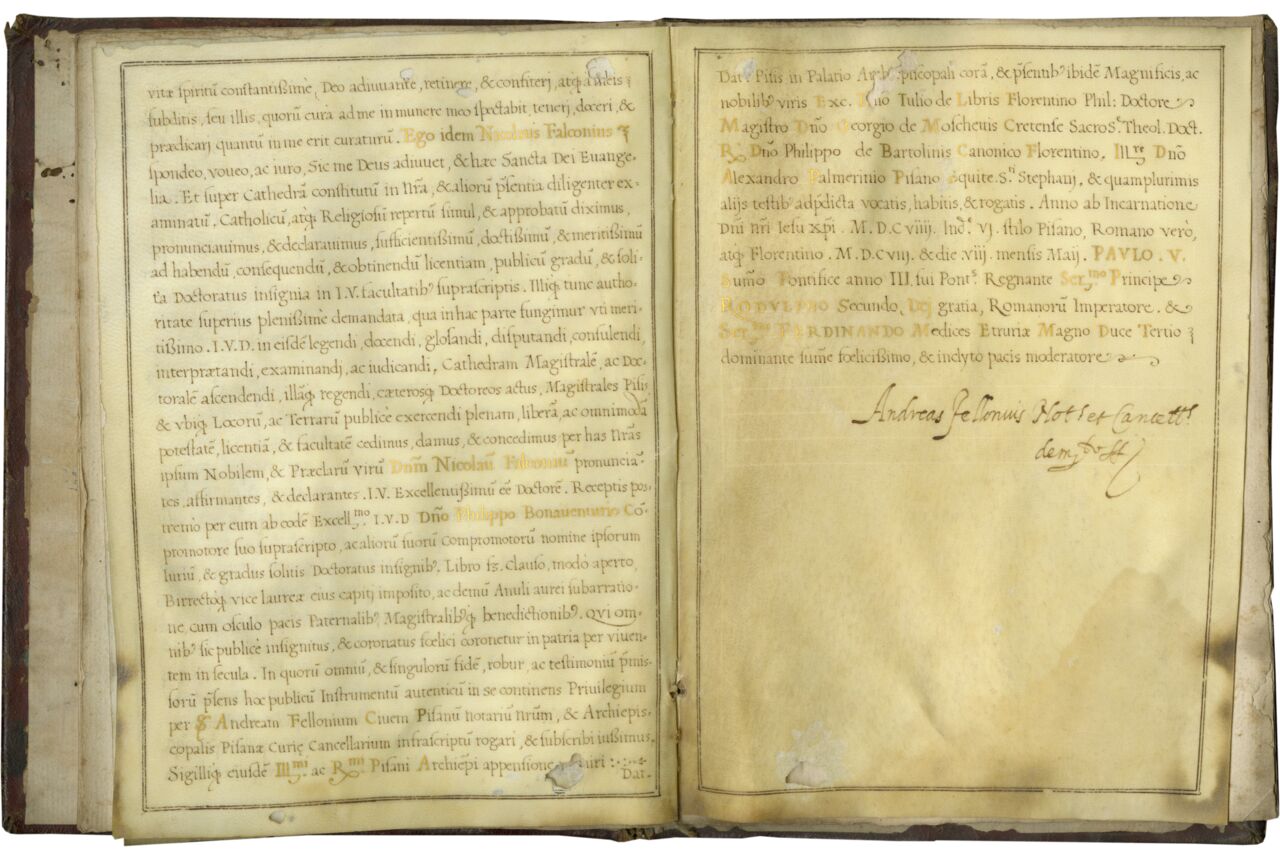 vitæ spiritũ constantissimè, Deo adiuuante, retinere, & confiterj, atq́ꝫ a meis
subditis, seu illis, quorũ cura ad me in munere meo spectabit, tenerj, docerj, &
prædicarj quantũ in me erit curaturũ. Ego idem Nicolaus Falconius
spondeo, voueo, ac iuro, Sic me Deus adiuuet, & hæc Sancta Dei Euange-
lia. Et super Cathedrã constitutũ in Nrã, & aliorũ pr̃sentia diligenter ex-
aminatũ, Catholicũ, atq́ꝫ Religiosũ repertũ simul, & approbatũ diximus,
pronunciauimus, & declarauimus, sufficientissimũ, doctissimũ, & meritissimũ
ad habendũ, consequendũ, & obtinendũ licentiam, publicũ gradũ, & soli-
ta Doctoratus insignia in I.V. facultatib⁹ suprascriptis. Illiq́ꝫ tunc autho-
ritate superius plenissimè demandata, qua in hac parte fungimur vti meri-
tissimo. I.V.D. in eisdẽ legendi, docendi, glosandi, disputandi, consulendi,
interprætandi, examinandj, ac iudicandi, Cathedram Magistralẽ, ac Doc-
toralẽ ascendendi, illãq́ꝫ regendi, cæterosq́ꝫ Doctoreos actus, Magistrales Pisis
& vbiq́ꝫ Locorũ, ac Terrarũ publicè exercendi plenam, liberã, ac omnimodã
potestatẽ, licentiã, & facultatẽ cedimus, damus, & concedimus per has Nr̃as
ipsum Nobilem, & Præclarũ virũ Dnm̃ Nicolaũ Falconiũ pronuncia-
tes, affirmantes, & declarantes. I.V. Excellentissimũ eẽ Doctorẽ. Receptis pos-
tremo per eum ab eodẽ Excell.mo I.V.D Dño Philippo Bonauenturio Cõ-
promotore suo suprascripto, ac aliorũ suorũ Compromotorũ nomine ipsorum
Iuriũ, & gradus solitis Doctoratus insignib⁹. Libro sꝫ. clauso, modò aperto,
Birrectoq́ꝫ vice laureæ eius capitj imposito, ac demũ Anuli aurei subarratio-
ne, cum osculo pacis Paternalib⁹, Magistralib⁹q́ꝫ benedictionib⁹. QVI om-
nib⁹ sic publicè insignitus, & coronatus fœlici coronetur in patria per viuen-
tem in secula. In quorũ omniũ, & singulorũ fidẽ, robur, ac testimoniũ pr̃mis-
sorũ pr̃sens hoc publicũ Instrumentũ autenticũ in se continens Priuilegium
per S. Andream Fellonium Ciuem Pisanũ notariũ nrũm, & Archiepis-
copalis Pisanæ Curię Cancellarium infrascriptũ rogari, & subscribi iussimus
Sigilliq́ꝫ eiusdẽ Ill.mi ac R.mi Pisani Archiep̃i appensione
Dat.
Dat. Pisis in Palatio Archiepiscopali corã, & pr̃sentib⁹ ibidẽ Magnificis, ac
nobilib⁹ viris Exc. Dño Tulio de Libris Florentino Phil: Doctore
Magistro Dño Georgio de Moschettis Cretense Sacros.e Theol. Doct.
R. Dño Philippo de Bartolinis Canonico Florentino, Ill.re Dño
Alexandro Palmerinio Pisano Equite S.ti Stephanj, & quamplurimis
alijs testib⁹ adpdicta vocatis, habitis, & rogatis. Anno ab Incarnatione
Dnĩ nr̃i Iesu xp̃i. M.D.C viiij. Ind.e VJ. stilo Pisano, Romano verò,
atq́ꝫ Florentino. M.D.C VIIJ. & die. viij. mensis Maij. PAVLO. V.
Sumõ Pontifice anno III. sui Pont.s Regnante Ser.mo Principe
RODVLPHO Secundo, Dej gratia, Romanorũ Imperatore. &
Ser.mo FERDINANDO Medices Etruriæ Magno Duce Tertio
dominante sumẽ fœlicissimo, & inclyto pacis moderatore
Andreas Fellonius Not.s et Cancell.s